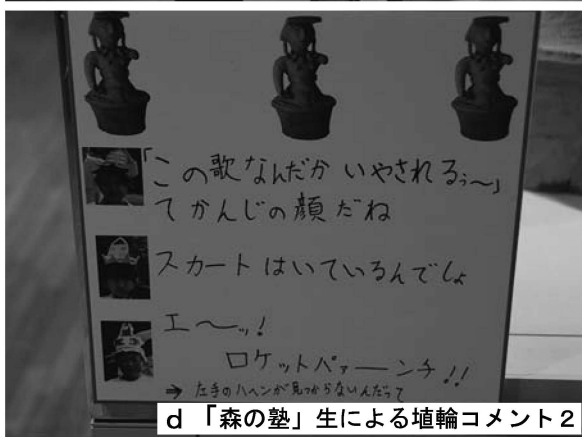 「この歌なんだか いやされるぅ〜」
てかんじの顔だね
スカートはいているんでしょ
エ〜ッ!
ロケットパァーンチ!!
→ 左手のハヘンが見つからないんだって
d 「森の塾」生による埴輪コメント2